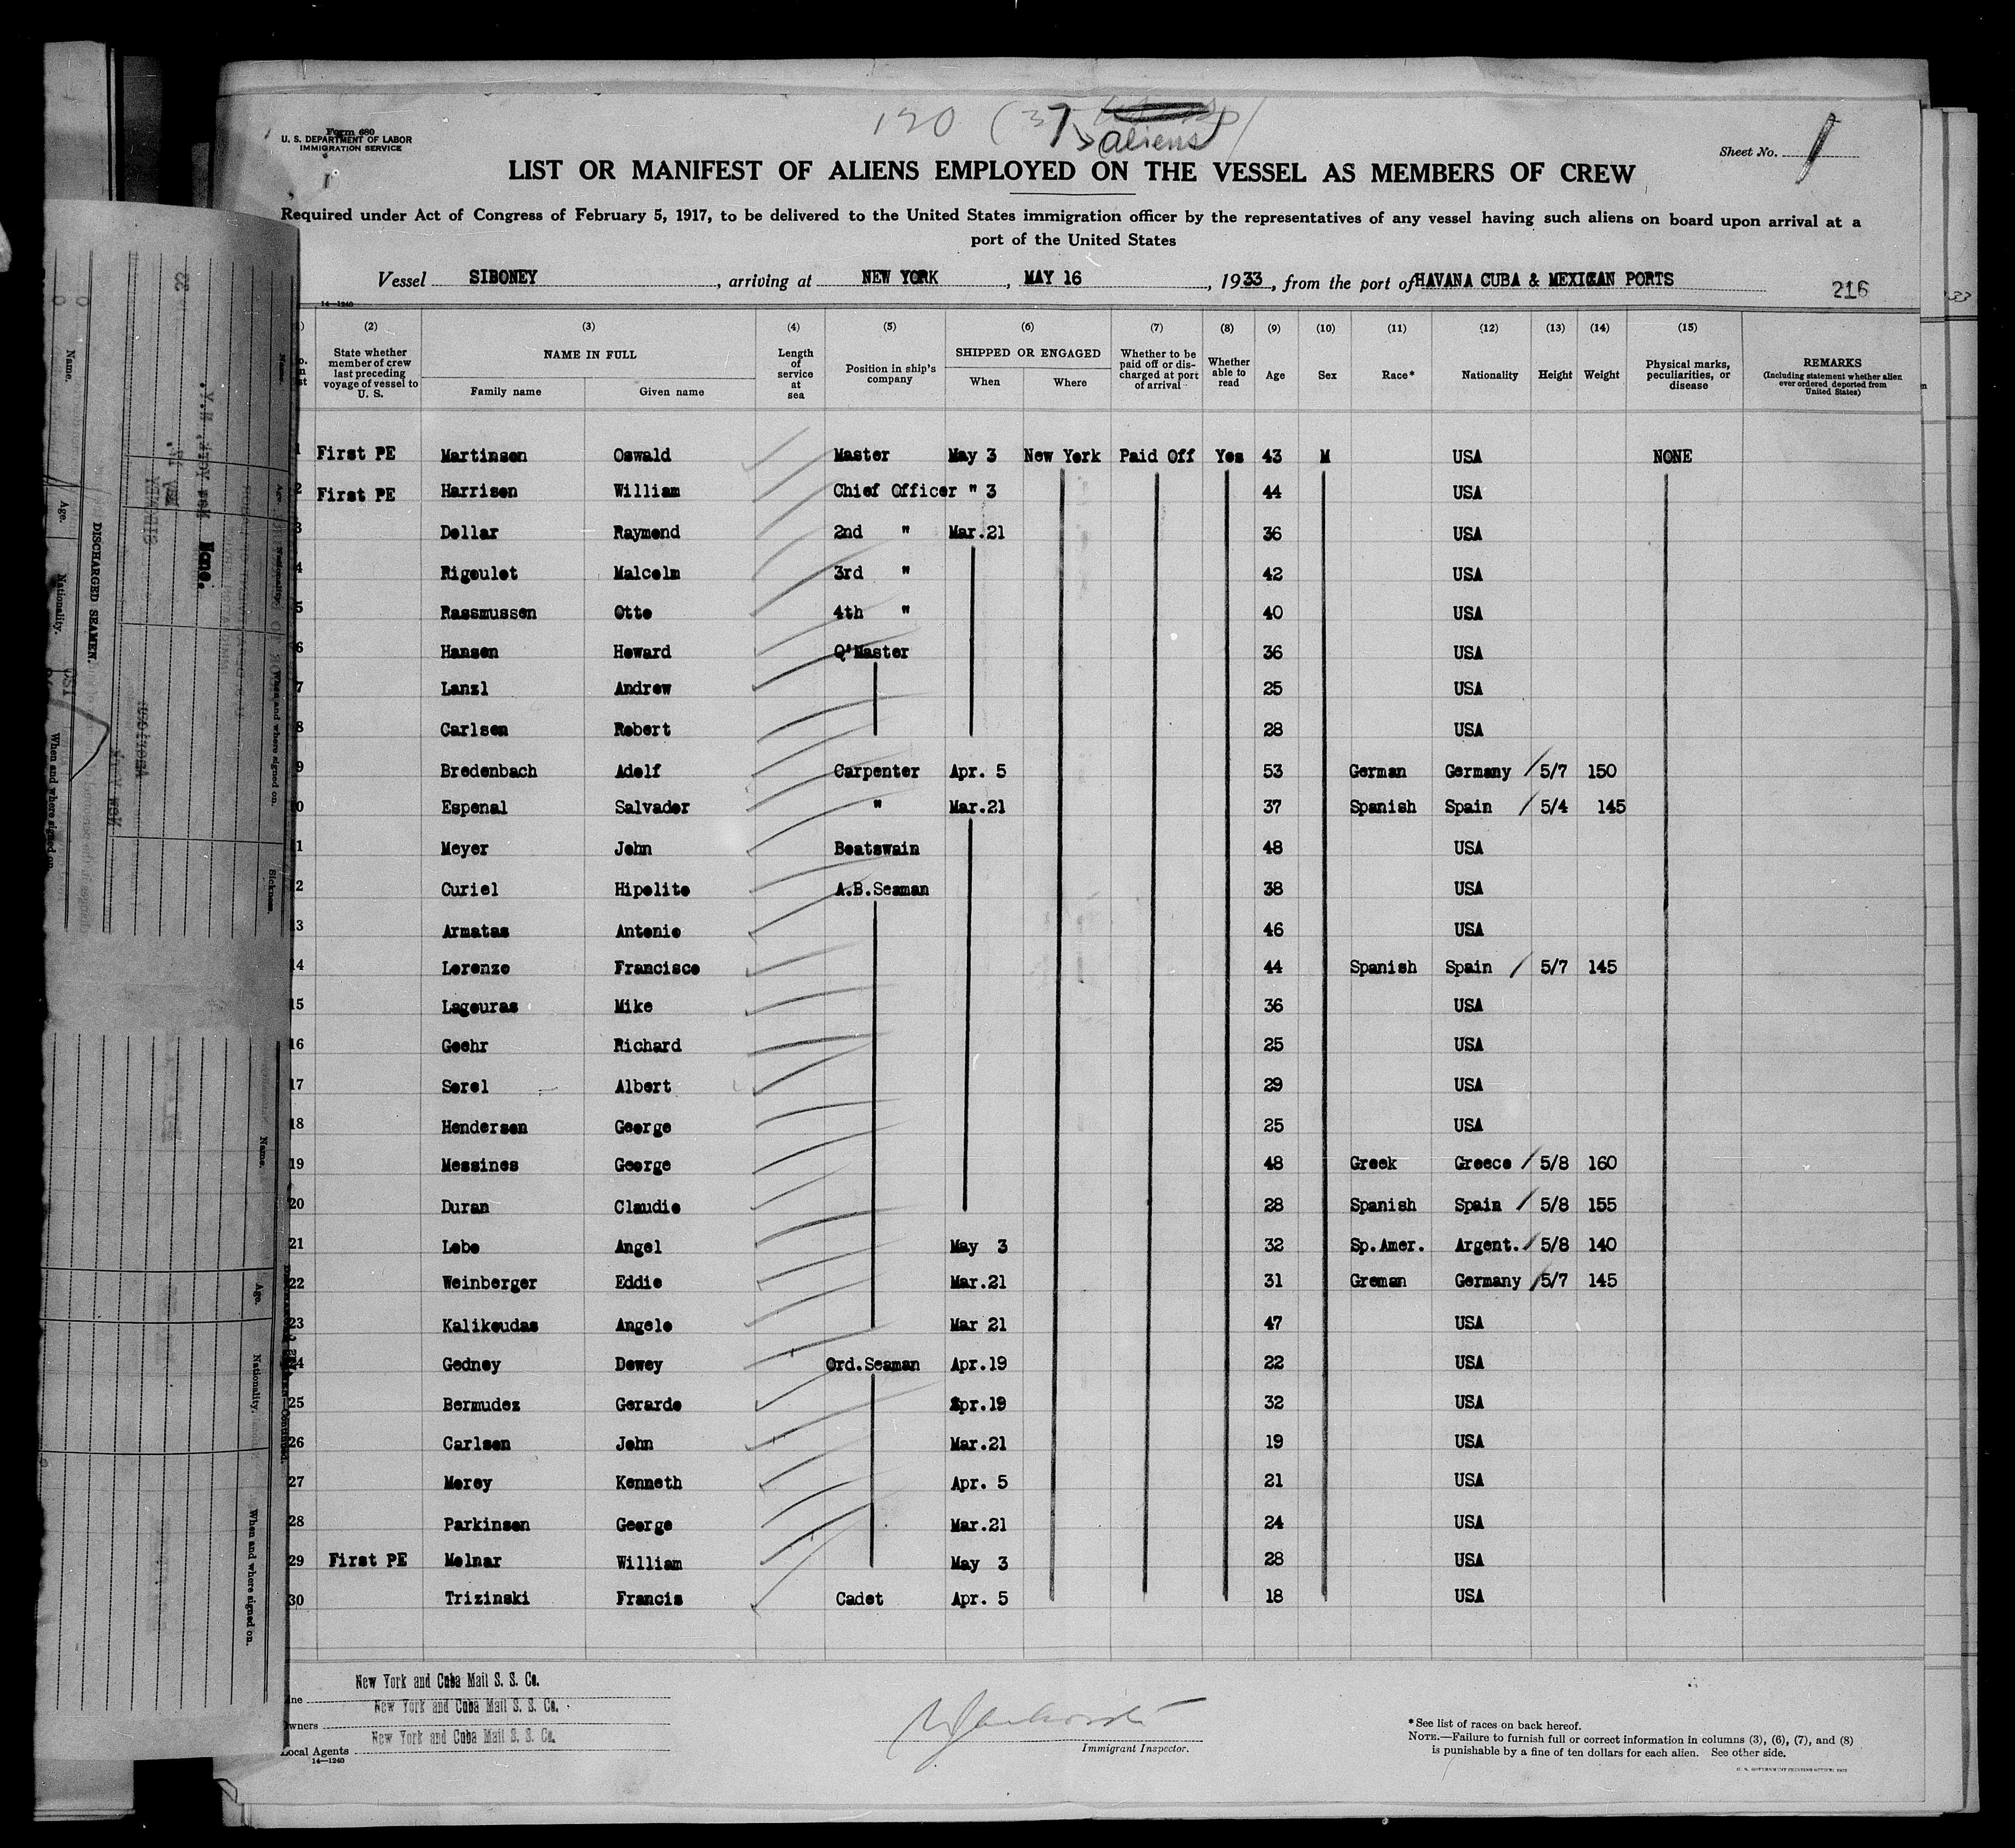 120 (37 aliens)
Form 680
U. S. DEPARTMENT OF LABOR
IMMIGRATION SERVICE
Sheet No. 1
LIST OR MANIFEST OF ALIENS EMPLOYED ON THE VESSEL AS MEMBERS OF CREW
Required under Act of Congress of February 5, 1917, to be delivered to the United States immigration officer by the representatives of any vessel having such aliens on board upon arrival at a
port of the United States
Vessel SIBONEY, arriving at NEW YORK, MAY 16, 1933, from the port of HAVANA CUBA & MEXICAN PORTS 216
14—1240
(2) (3) (4) (5) (6) (7) (8) (9) (10) (11) (12) (13) (14) (15)
State whether member of crew last preceding voyage of vessel to U. S.
NAME IN FULL
Family name Given name
Length of service at sea
Position in ship's company
SHIPPED OR ENGAGED
When Where
Whether to be paid off or discharged at port of arrival
Whether able to read
Age Sex Race* Nationality Height Weight
Physical marks, peculiarities, or disease
REMARKS
(Including statement whether alien ever ordered deported from United States)
1 First PE Martinsen Oswald Master May 3 New York Paid Off Yes 43 M USA NONE
2 First PE Harrisen William Chief Officer " 3 44 USA
3 Dollar Raymond 2nd " Mar.21 36 USA
4 Rigoulot Malcolm 3rd " 42 USA
5 Rassmussen Otto 4th " 40 USA
6 Hansen Howard Q'Master 36 USA
7 Lanzl Andrew 25 USA
8 Carlsen Robert 28 USA
9 Bredenbach Adolf Carpenter Apr. 5 53 German Germany / 5/7 150
0 Espenal Salvador " Mar.21 37 Spanish Spain / 5/4 145
1 Meyer John Boatswain 48 USA
2 Curiel Hipolito A.B.Seaman 38 USA
3 Armatas Antonio 46 USA
14 Lorenzo Francisco 44 Spanish Spain / 5/7 145
15 Lagouras Mike 36 USA
16 Goehr Richard 25 USA
17 Sorel Albert 29 USA
18 Henderson George 25 USA
19 Messines George 48 Greek Greece / 5/8 160
20 Duran Claudio 28 Spanish Spain / 5/8 155
21 Lobo Angel May 3 32 Sp.Amer. Argent. / 5/8 140
22 Weinberger Eddie Mar.21 31 Greman Germany / 5/7 145
23 Kalikoudas Angelo Mar 21 47 USA
24 Gedney Dewey Ord.Seaman Apr.19 22 USA
25 Bermudez Gerardo Apr.19 32 USA
26 Carlsen John Mar.21 19 USA
27 Morey Kenneth Apr. 5 21 USA
28 Parkinson George Mar.21 24 USA
29 First PE Molnar William May 3 28 USA
30 Trizinski Francis Cadet Apr. 5 18 USA
New York and Cuba Mail S. S. Co.
New York and Cuba Mail S. S. Co.
Owners
New York and Cuba Mail S. S. Co.
Local Agents
14—1240
Immigrant Inspector.
* See list of races on back hereof.
NOTE.—Failure to furnish full or correct information in columns (3), (6), (7), and (8)
is punishable by a fine of ten dollars for each alien. See other side.
DISCHARGED SEAMEN.
Name.
Age.
Nationality.
When and where signed on.
Sickness.
Name.
Age.
Nationality.
When and where signed on.